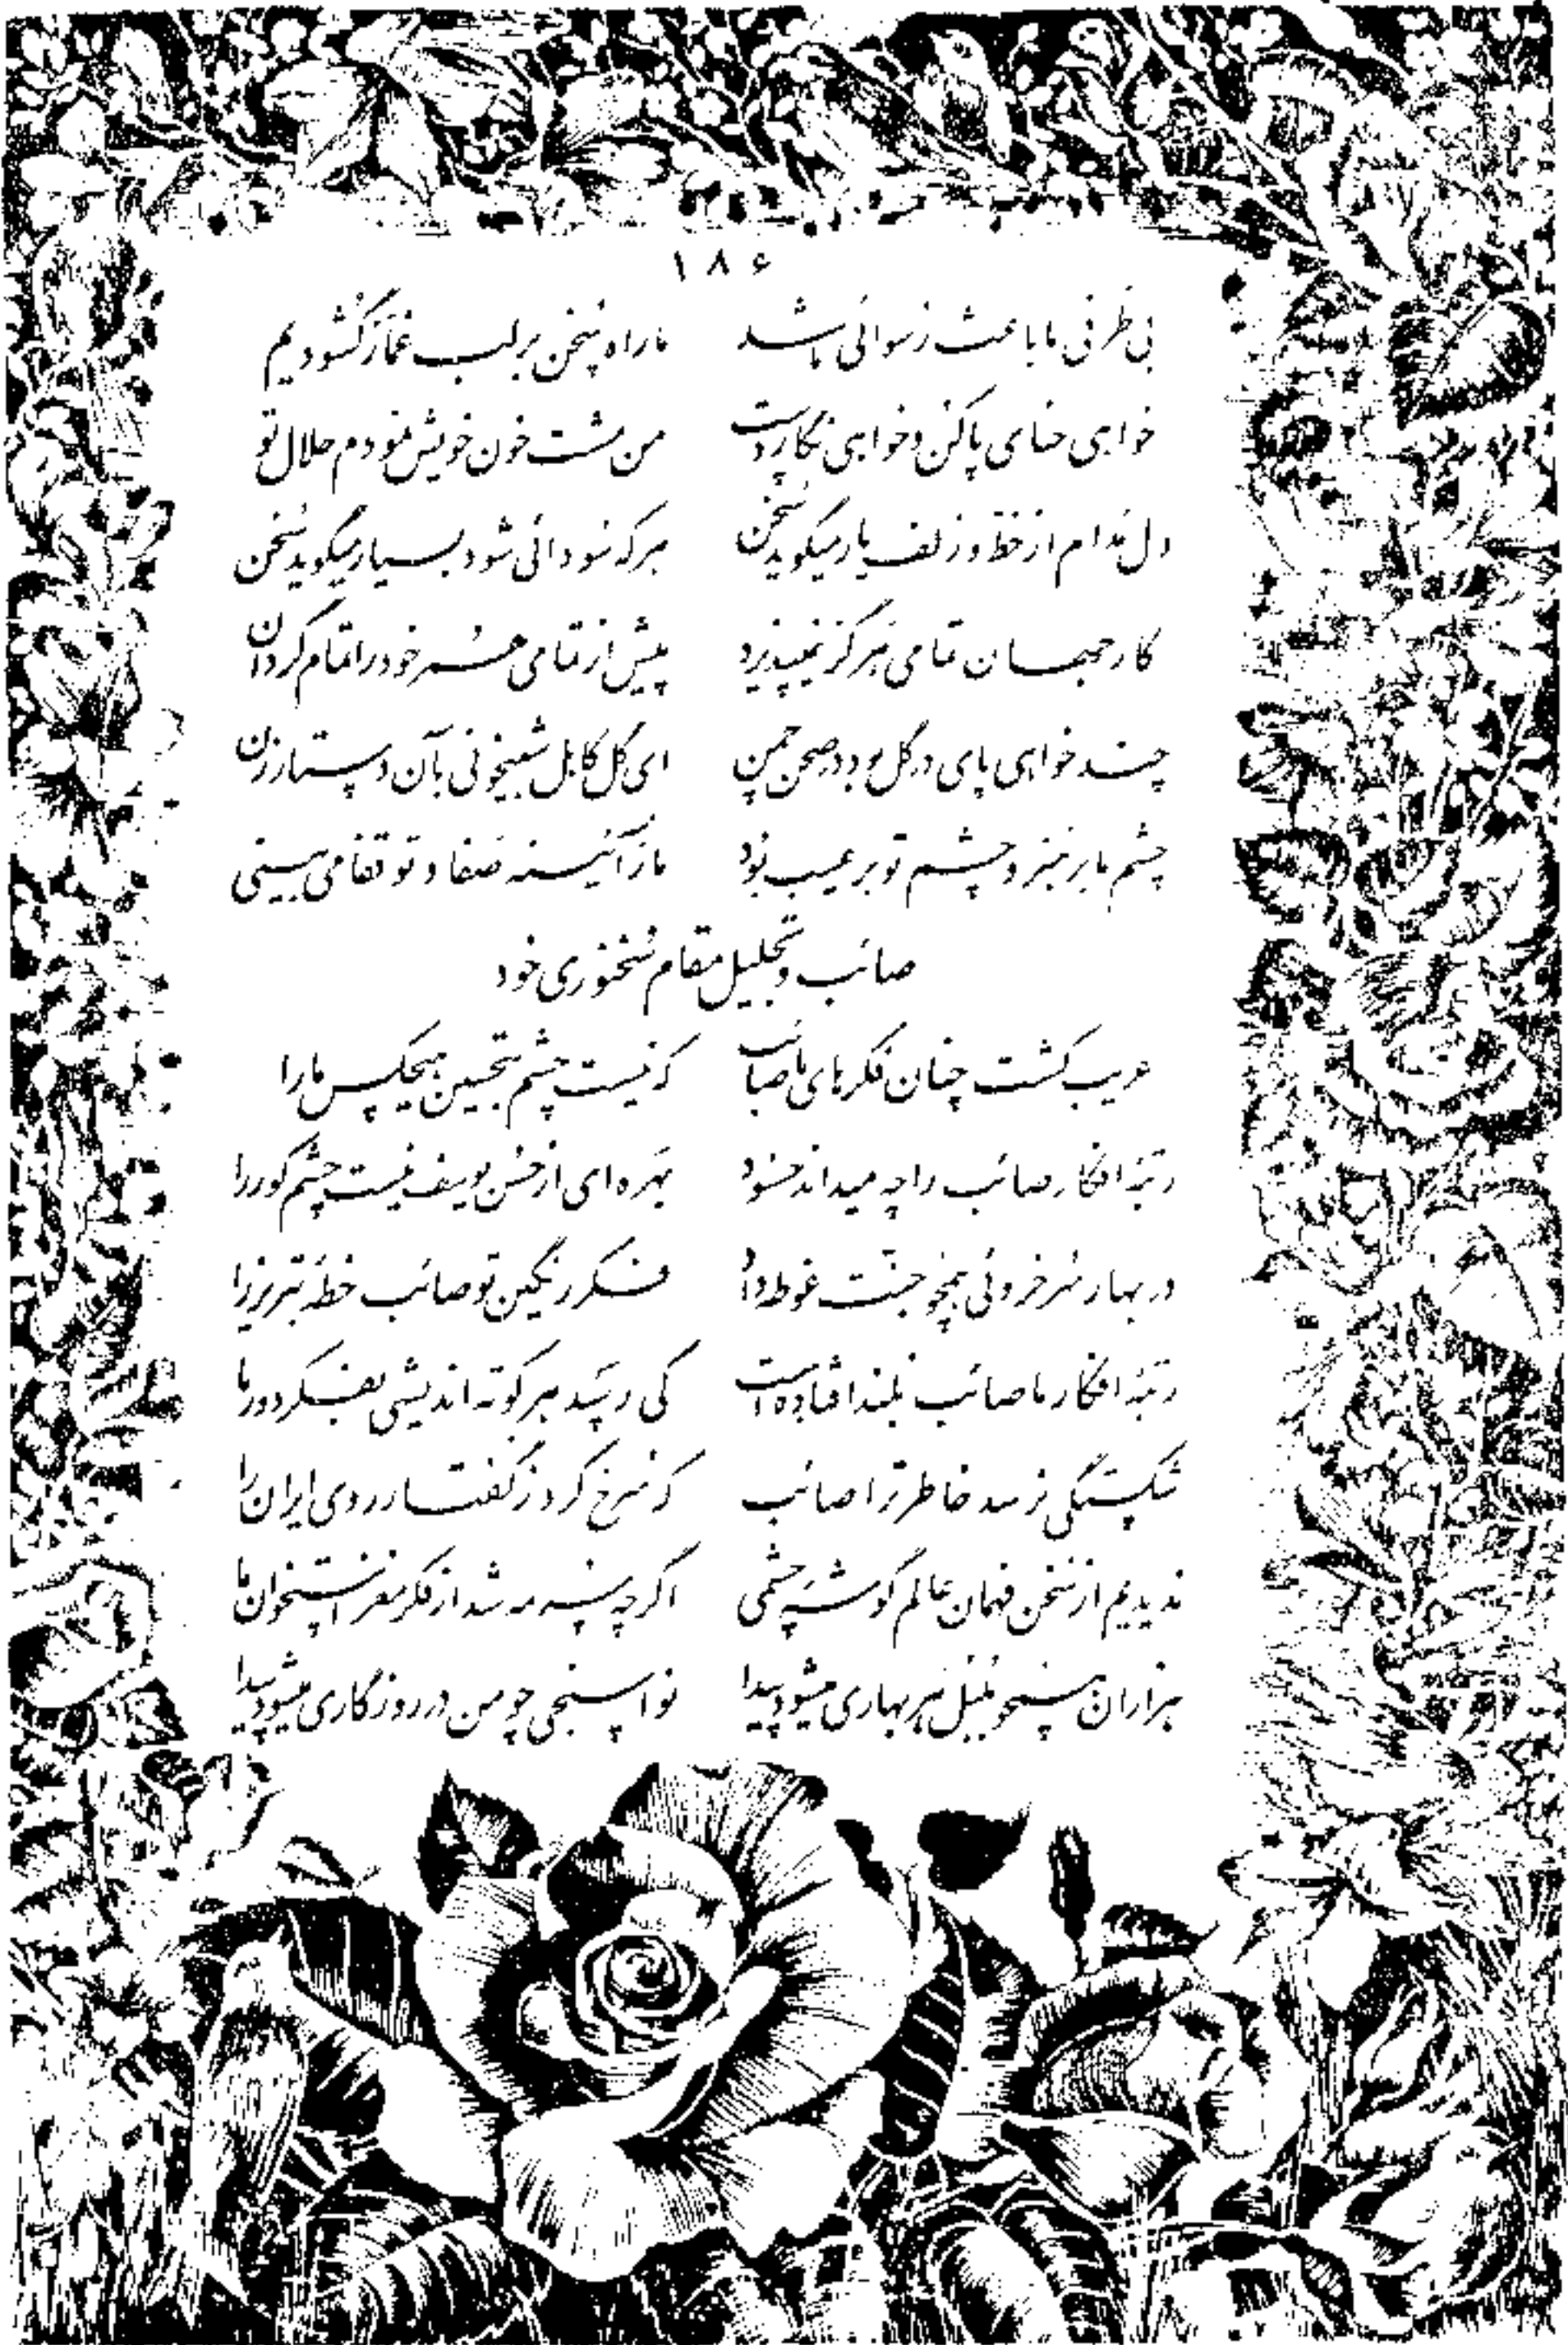 ۱۸۶
بی ظرفی ما باعث رسوائی ما شد ما راه سخن بر لب غماز گشودیم
خواهی حنای پا کن و خواهی نگار دست من مشت خون خویش نمودم حلال تو
دل مدام از خط و زلف یار میگوید سخن هر که سودائی شود بسیار میگوید سخن
کار جهان تمامی هرگز نمیپذیرد پیش از تمامی عمر خود را تمام گردان
چند خواهی پای در گل بود در صحن چمن ای گل کابل شبیخونی بآن دستار زن
چشم ما بر هنر و چشم تو بر عیب بود ما ز آئینه صفا و تو قفا می بینی
صائب و تجلیل مقام سخنوری خود
غریب گشت چنان فکرهای ما صائب که نیست چشم بتحسین هیچکس ما را
رتبهٔ افکار صائب را چه میداند حسود بهره ای از حسن یوسف نیست چشم کور را
در بهار سرخ روئی همچو جنت غوطه داد فکر رنگین تو صائب خطهٔ تبریز را
رتبهٔ افکار ما صائب بلند افتاده است کی رسد هر کوته اندیشی بفکر دور ما
شکستگی نرسد خاطر ترا صائب که سرخ کرد ز گفتار روی ایران را
ندیدیم از سخن فهمان عالم گوشهٔ چشمی اگر چه سرمه شد از فکر مغز استخوان ما
هزاران همچو بلبل هر بهاری میشود پیدا نوا سنجی چو من در روزگاری میشود پیدا